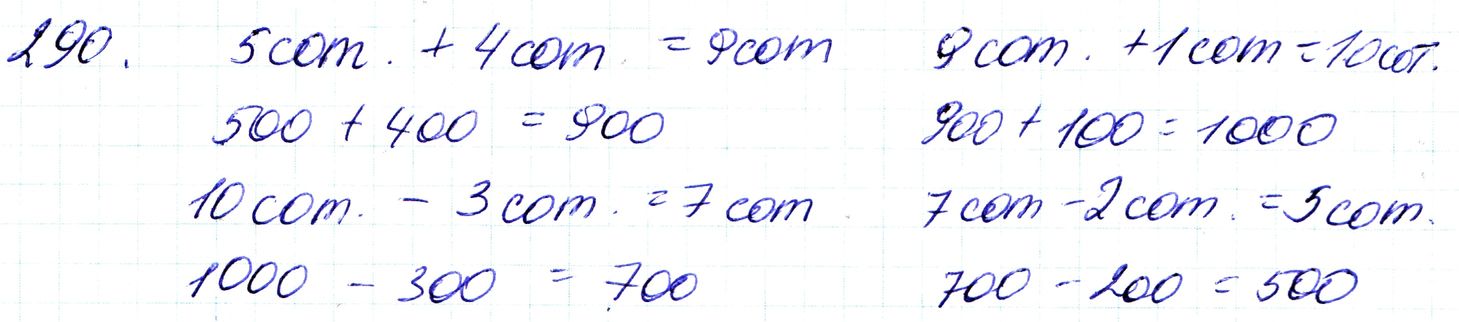 290. 5 сот. + 4 сот = 9 сот 9 сот. + 1 сот = 10 сот.
500 + 400 = 900 900 + 100 = 1000
10 сот. - 3 сот. = 7 сот 7 сот - 2 сот. = 5 сот.
1000 - 300 = 700 700 - 200 = 500